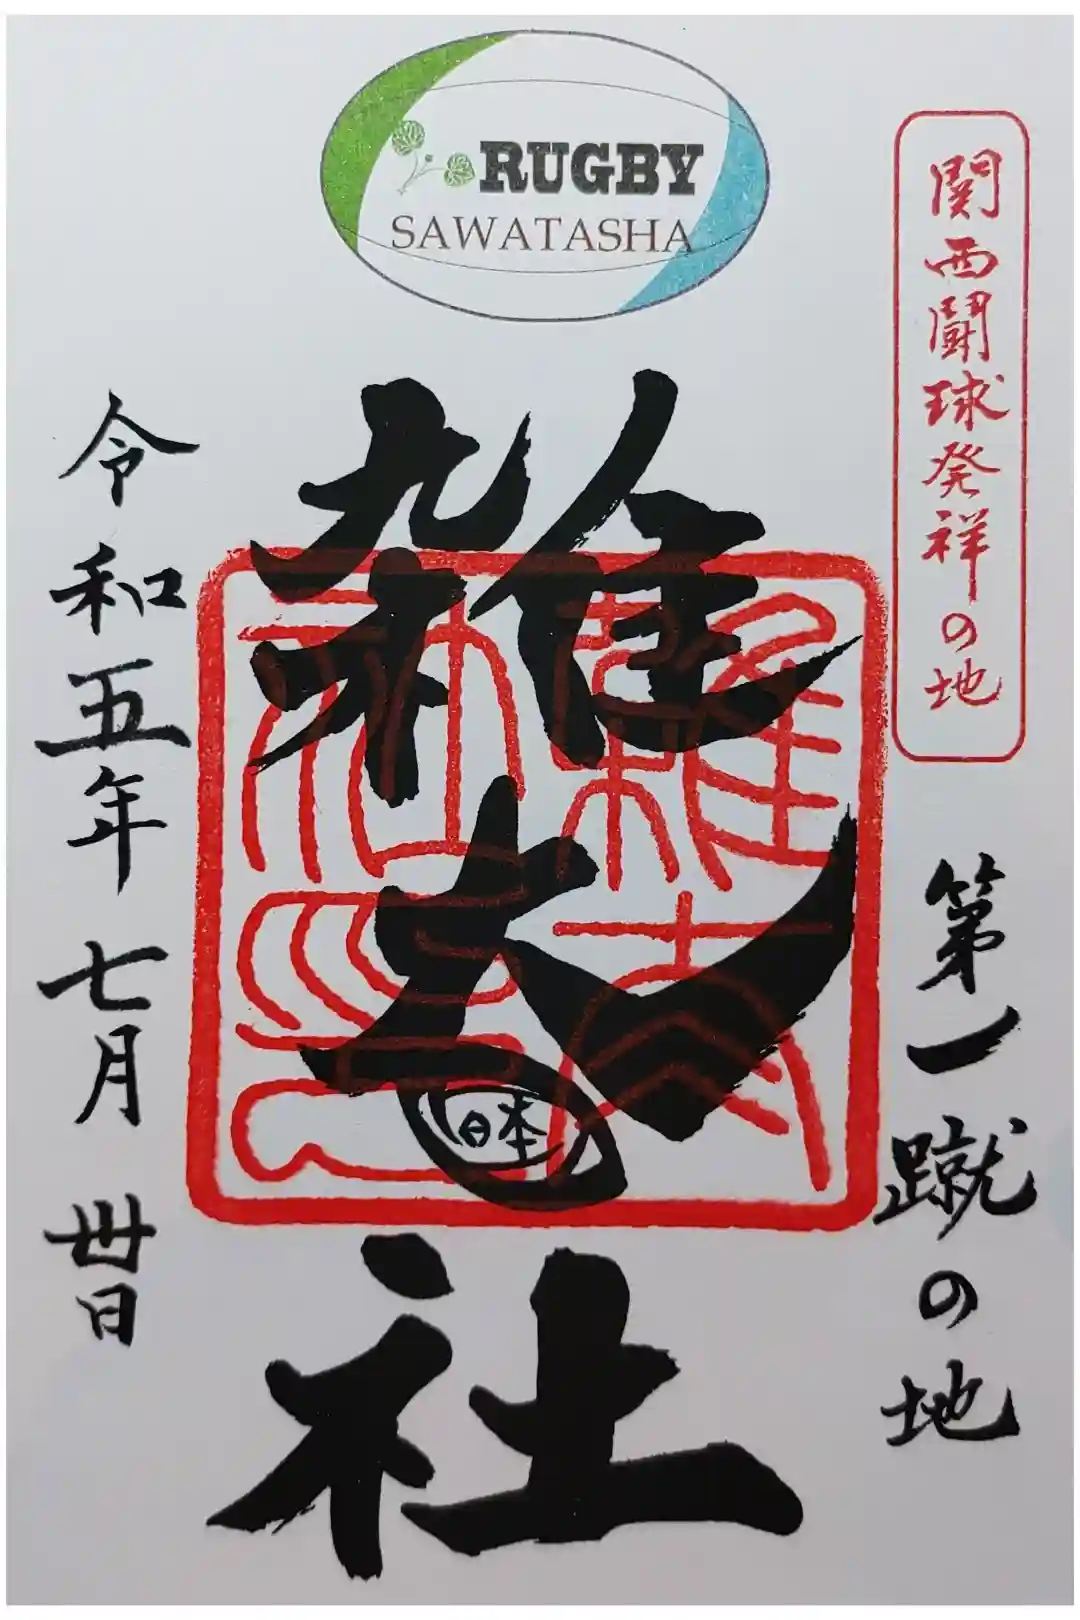 RUGBY
SAWATASHA
関西闘球発祥の地
第一蹴の地
雑太社
日本
令和五年七月丗日